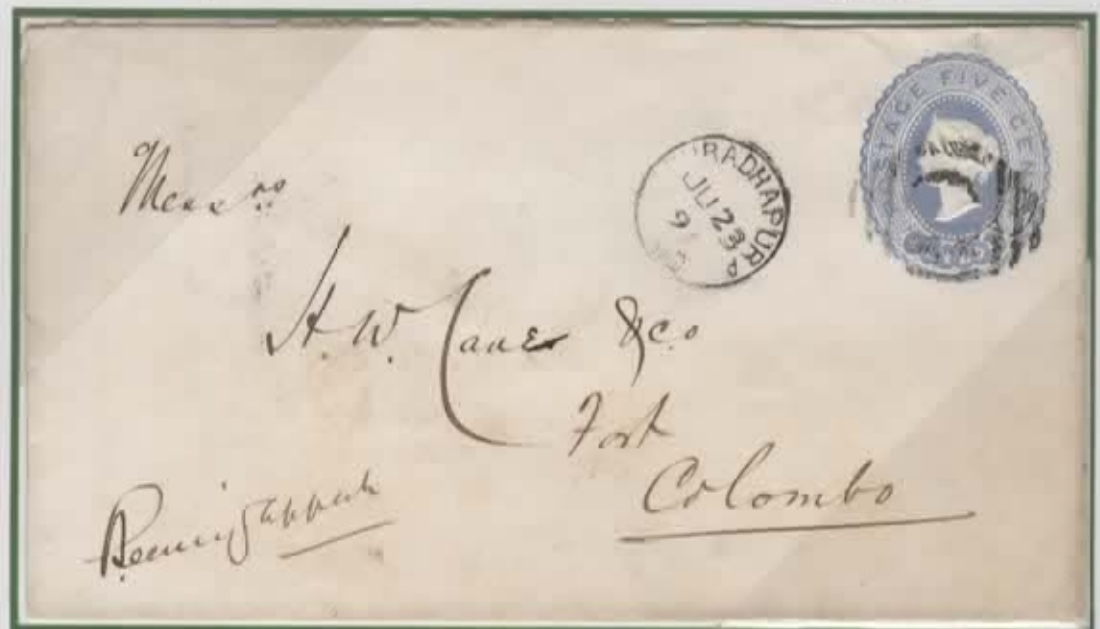 POSTAGE FIVE CEN
URADHAPURA
JU 23
9
Messrs
H. W. Cave & Co
Fort
Colombo